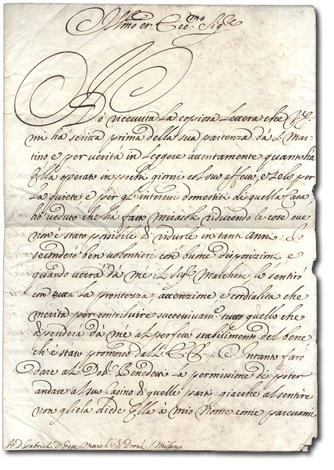 Illmo et Ecc.mo Sig.re
Hò ricevuta la copiosa lettera che V.E.
mi ha scritta prima della sua partenza da S. Mar-
tino e per verità in leggere attentamente quanto ha
Ella operato in pochi giorni col suo affetto, e zelo per
la quiete e per gl'interessi domestici di quella Casa
hò veduto che hà fatto miracoli riducendo le cose ove
non è stato possibile di ridurle in tanti anni. Io
seconderò ben volentieri così buone disposizioni, e
quando verrà da me il Sig.r Marchese lo sentirò
con tutta la prontezza, attenzione e cordialità che
merita per contribuire successivam.te tutto quello che
dipenderà da mè al perfetto stabilimento del bene
ch'è stato promosso dall' E.V. Intanto farò
dare al Dot. Benedetto la permissione di poter
andare al suo Casino di quelle parti giacchè al sentire
non gliela diede Ella à mio nome come parevami
Milano